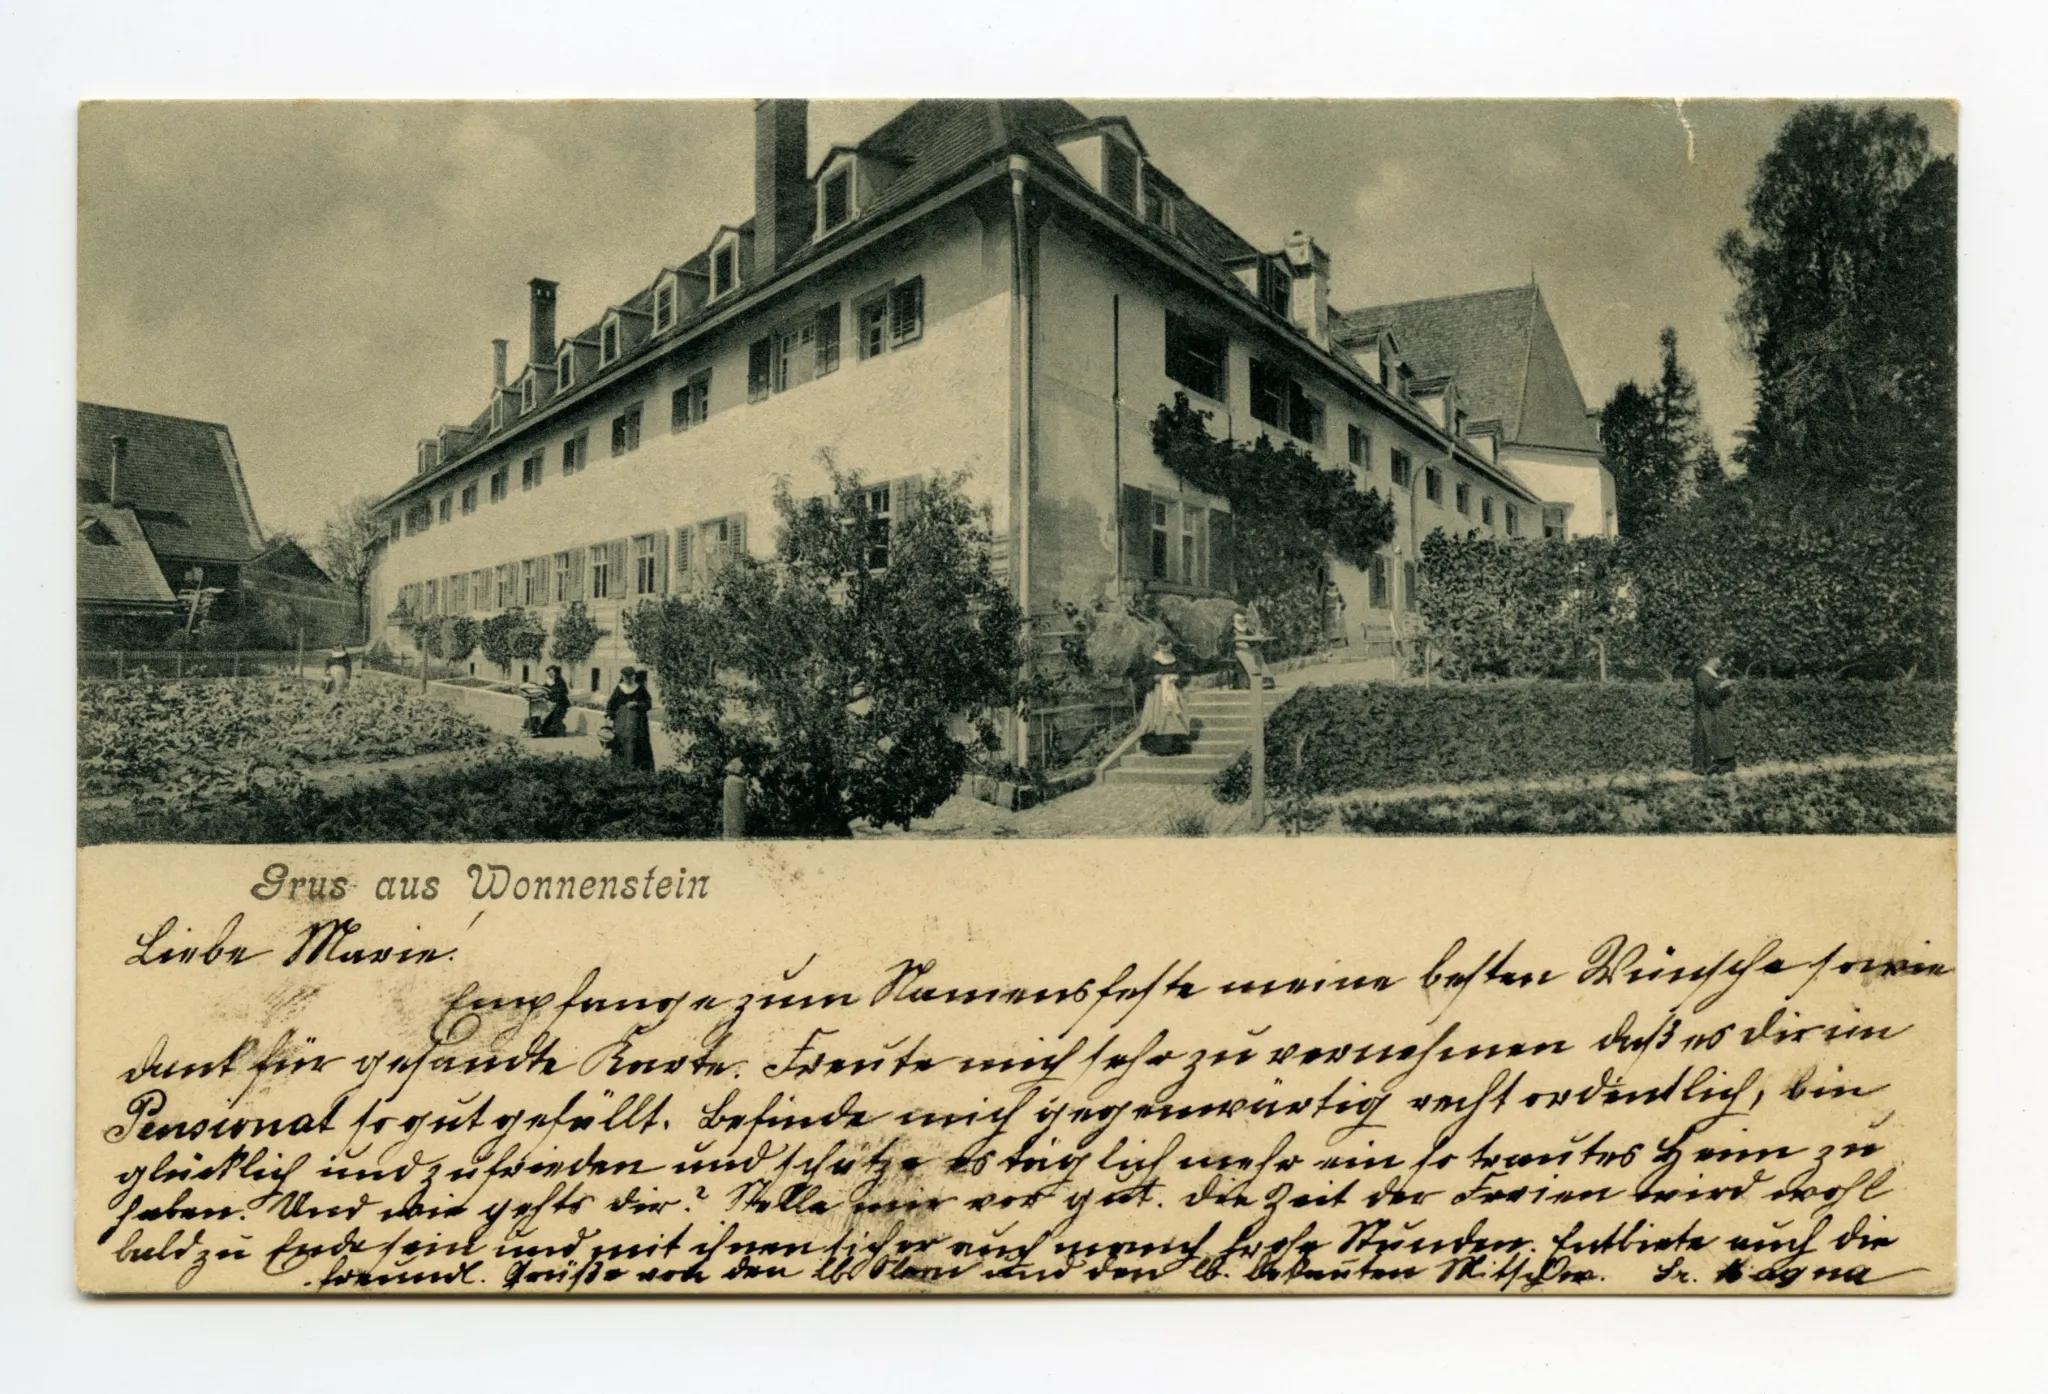 Grus aus Wonnenstein
Liebe Marie!
Empfange zum Namensfeste meine besten Wünsche sowie
dank für gesandte Karte. Freute mich sehr zu vernehmen daß es dir im
Pensionat so gut gefällt. Befinde mich gegenwärtig recht ordentlich, bin
glücklich und zufrieden und schätze es täglich mehr ein so trautes Heim zu
haben. Und wie gehts dir? Stelle mir vor gut. die Zeit der Ferien wird wohl
bald zu Ende sein und mit ihnen sicher auch manch frohe Stunden. Entbiete auch die
freundl. Grüße von den lb. und den lb. bekannten Mitschw. Sr. Magna